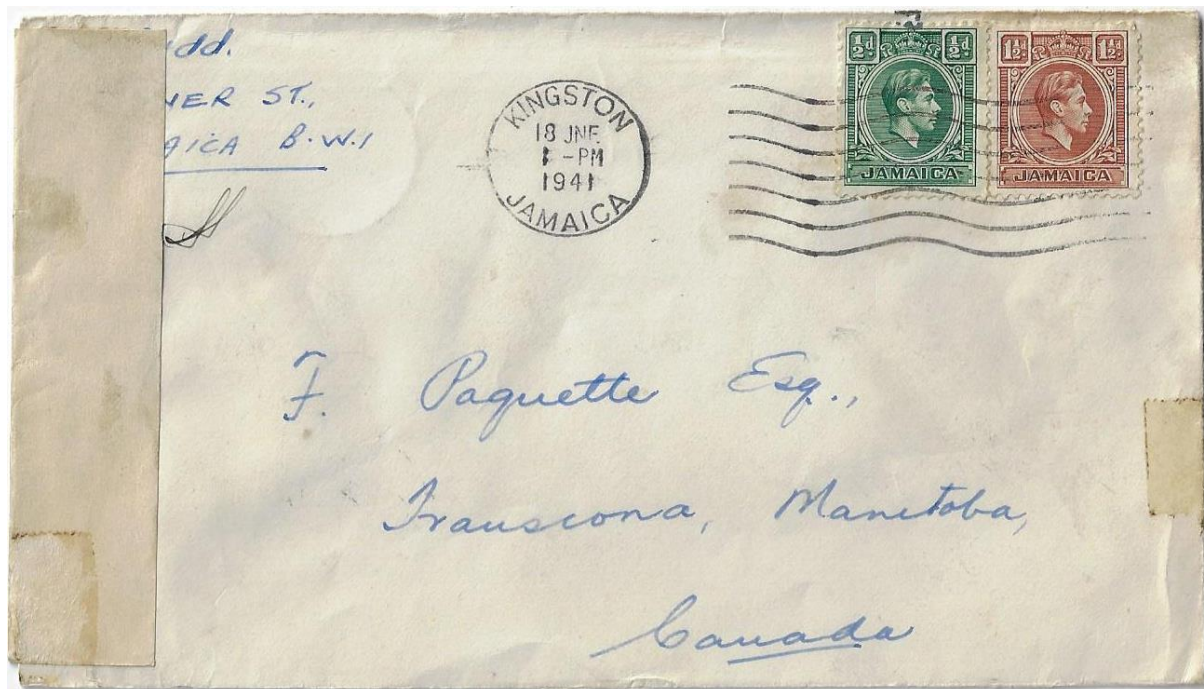 ST.,
B.W.1
KINGSTON
18 JNE.
-PM
1941
JAMAICA
½d ½d
JAMAICA
1½d. 1½d.
JAMAICA
F. Paquette Esq.,
Transcona, Manitoba,
Canada